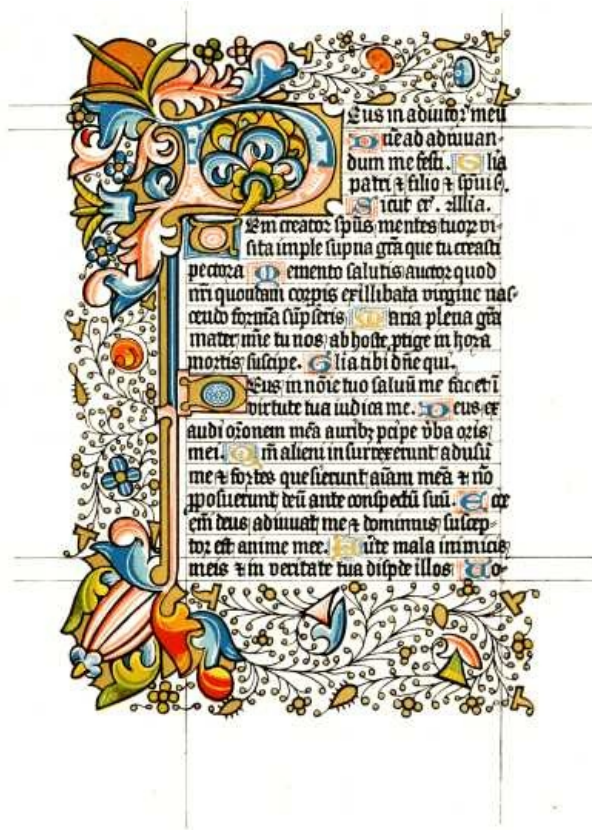 Deus in adiutor' meū
Dn̄e ad adiuuan-
dum me festi. Glia
patri ⁊ filio ⁊ spūi s̄.
Sicut er'. Allia.
Uem creator spūs mentes tuoꝝ vi-
sita imple supna grā que tu creasti
pectora Memento salutis auctor quod
nr̄i quondam corpis ex illibata virgine nas-
cendo formā sūpseris Maria plena grā
mater mīe tu nos ab hoste ptige in hora
mortis suscipe. Glia tibi dn̄e qui
Deus in noīe tuo saluū me fac et ī
virtute tua iudica me. Deus ex
audi orōnem meā auribꝫ pcipe vba oris
mei. Qm̄ alieni insurrexerunt adusū
me ⁊ fortes quesierunt aīam meā ⁊ nō
pposuerunt deū ante conspectū suū. Ecce
em̄ deus adiuuat me ⁊ dominus suscep-
tor est anime mee. Auerte mala inimicis
meis ⁊ in veritate tua dispde illos Uo-